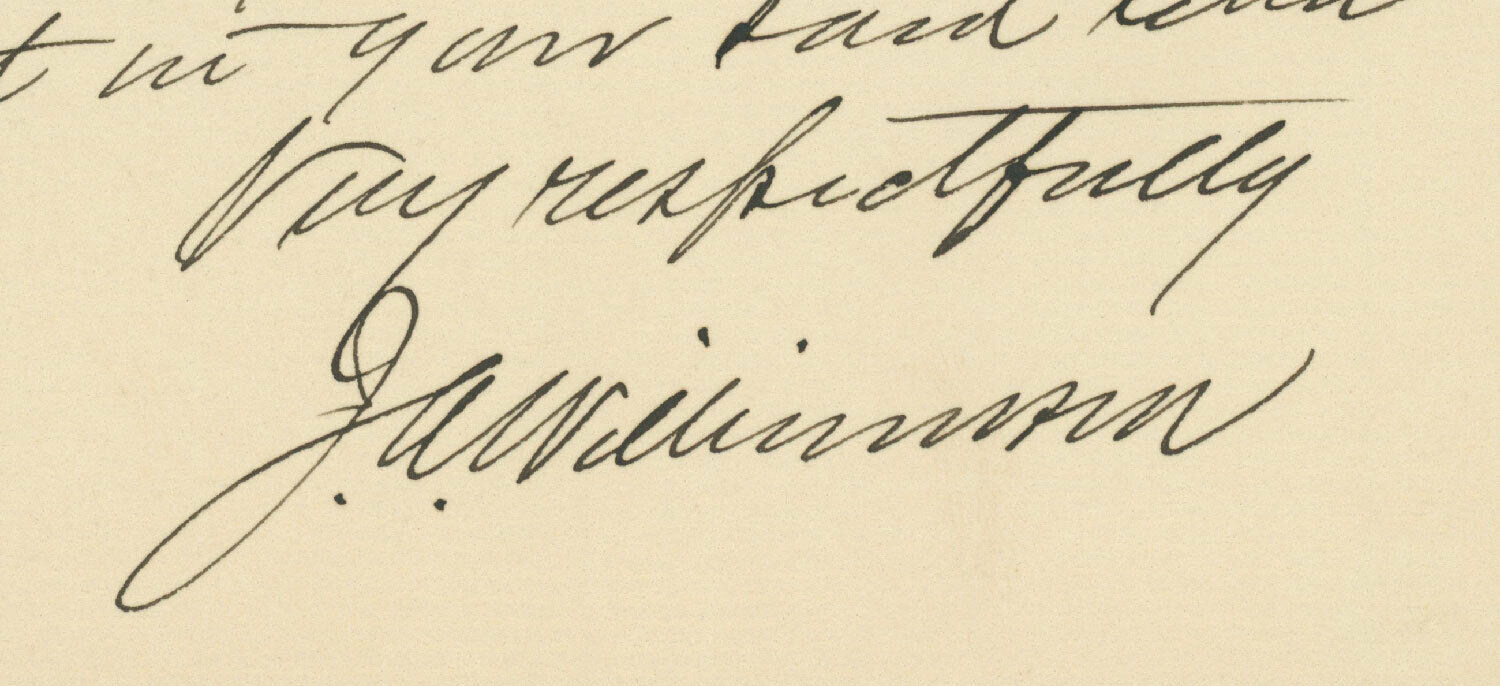 in your said
Very respectfully
J. A. Williamson